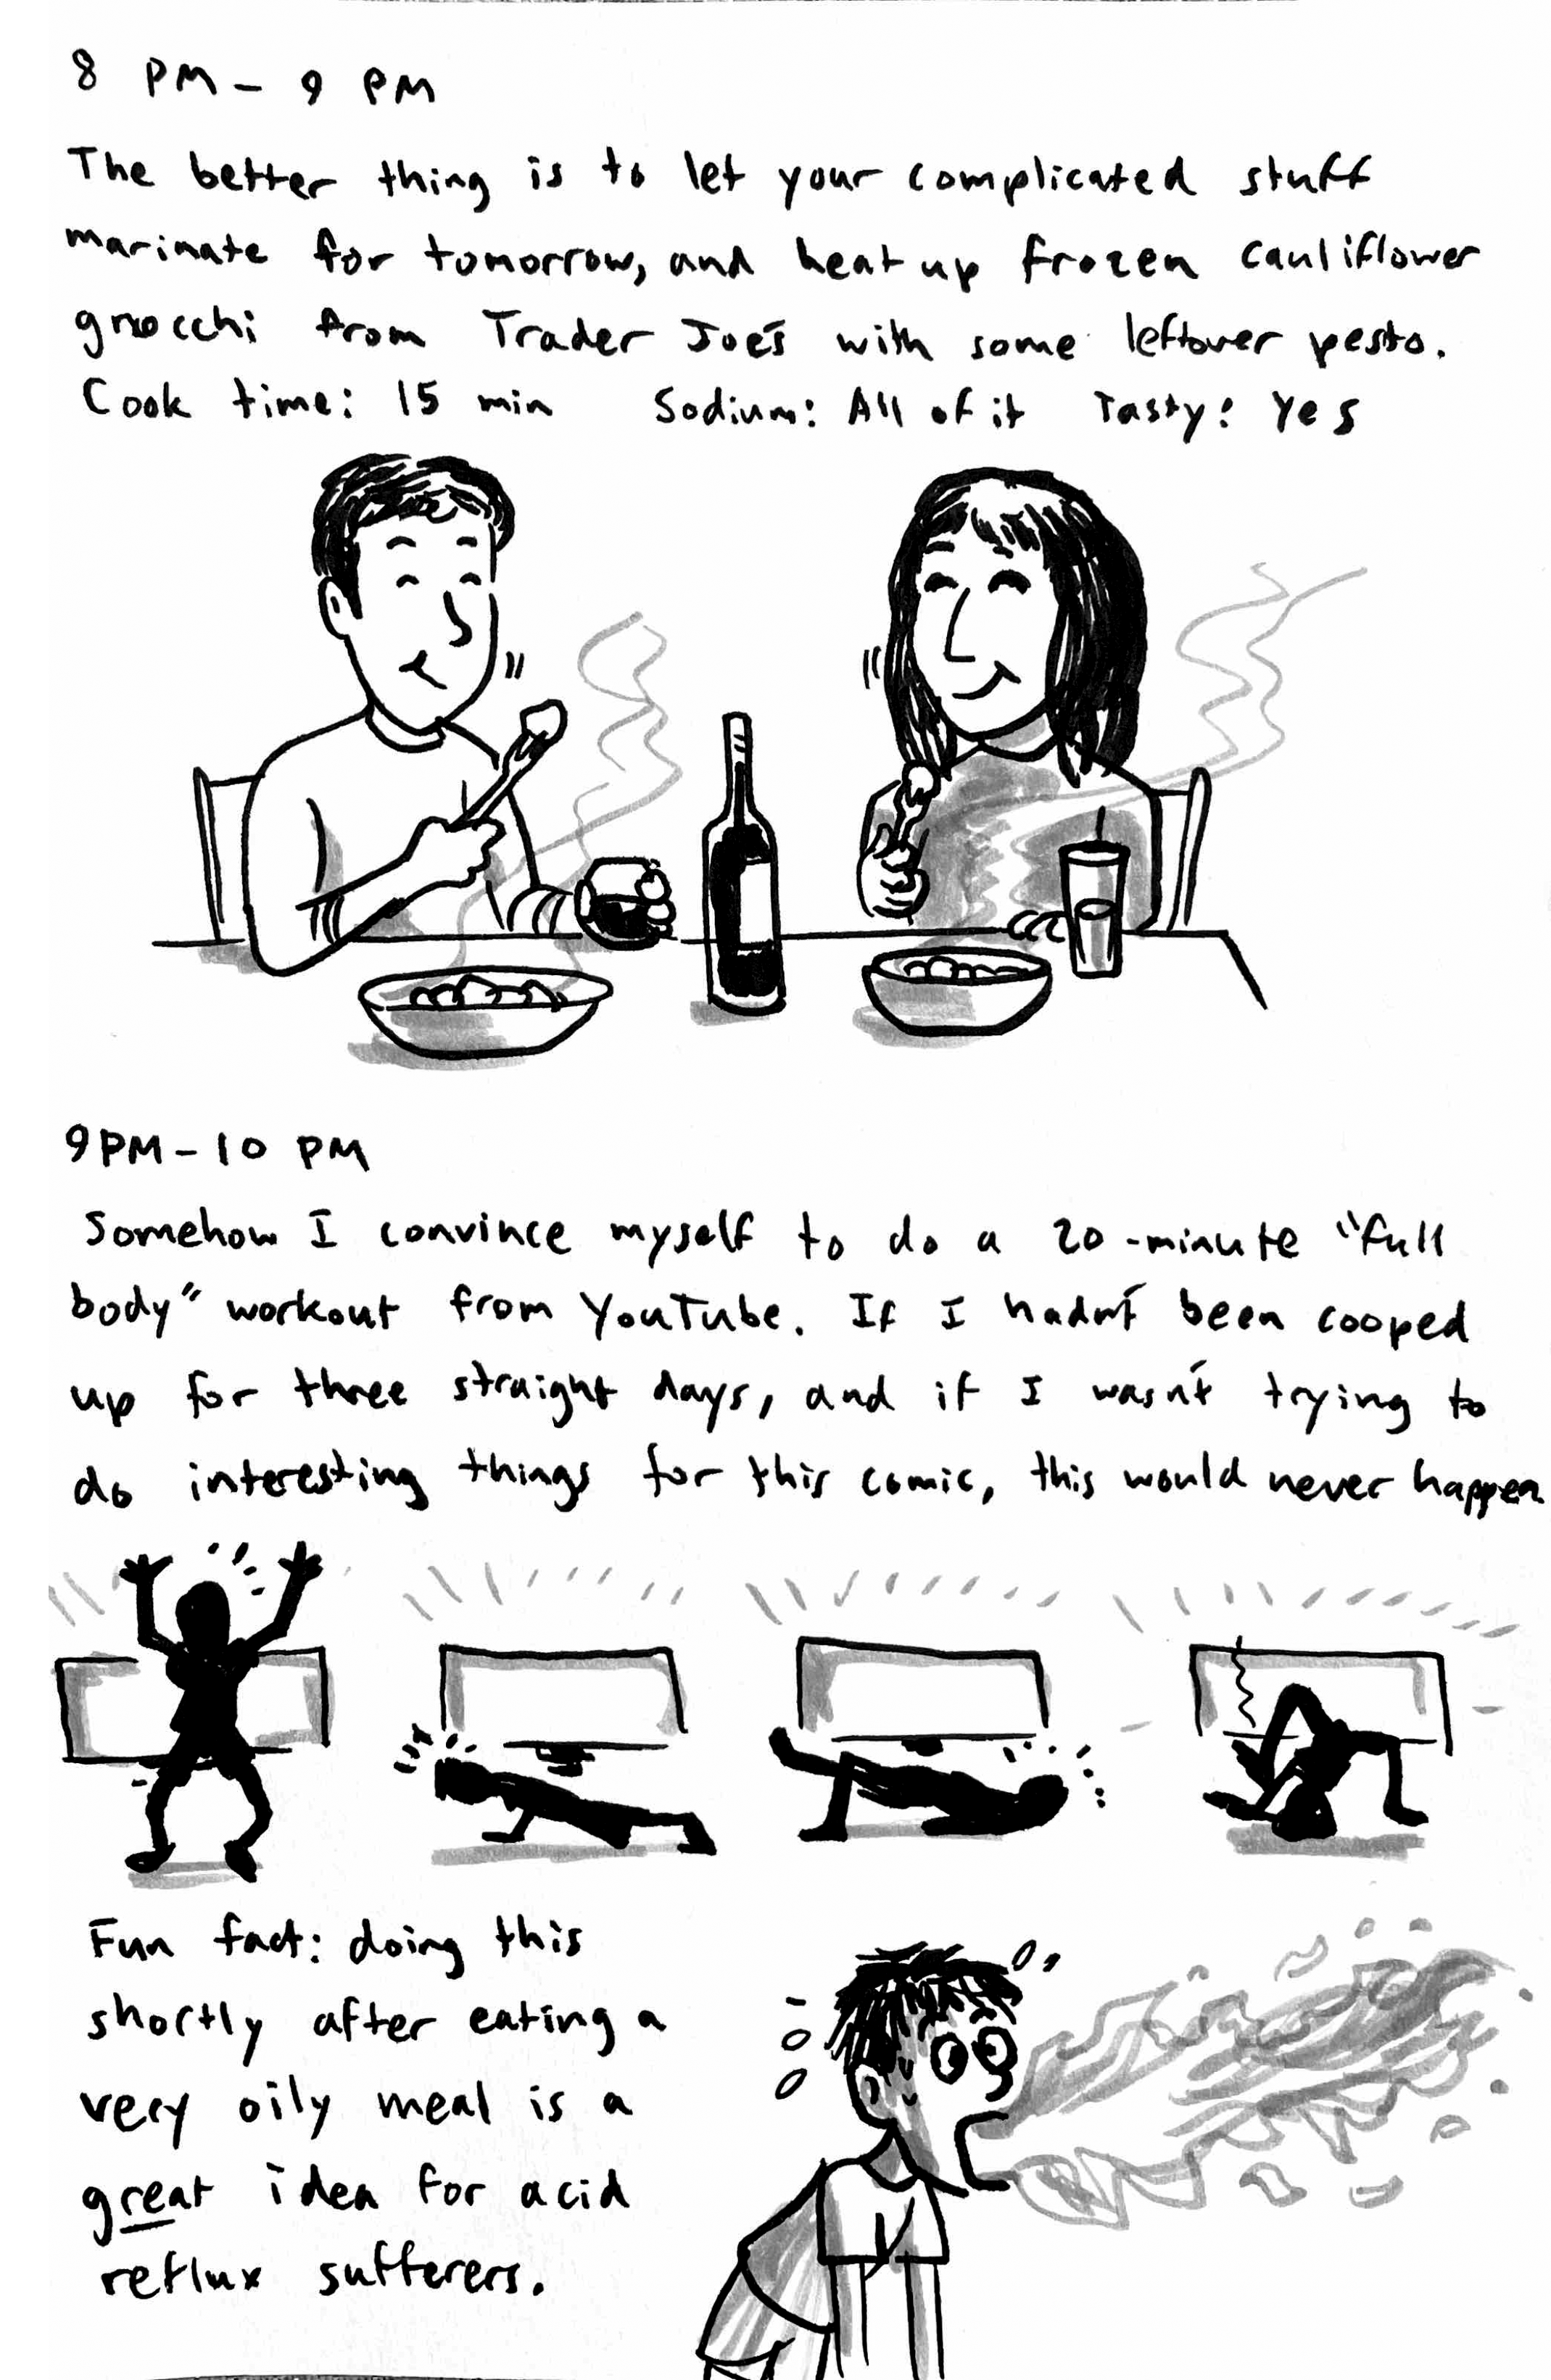 8 PM - 9 PM
The better thing is to let your complicated stuff
marinate for tomorrow, and heat up frozen cauliflower
gnocchi from Trader Joe's with some leftover pesto.
Cook time: 15 min Sodium: All of it Tasty: Yes
9PM - 10 PM
Somehow I convince myself to do a 20-minute "full
body" workout from YouTube. If I hadn't been cooped
up for three straight days, and if I wasn't trying to
do interesting things for this comic, this would never happen.
Fun fact: doing this
shortly after eating a
very oily meal is a
great idea for acid
reflux sufferers.